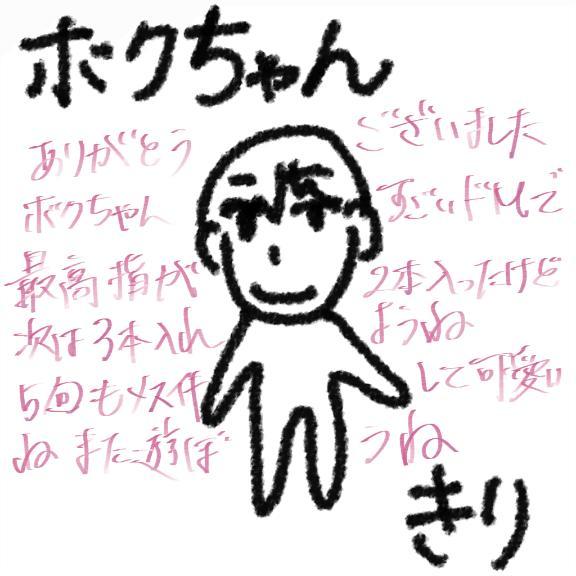 ボクちゃん
ありがとう ございました
ボクちゃん すごいドMで
最高 指が 2本入ったけど
次は3本入れ ようね
5回もメス件 して可愛い
ね また遊ぼ うね
きり